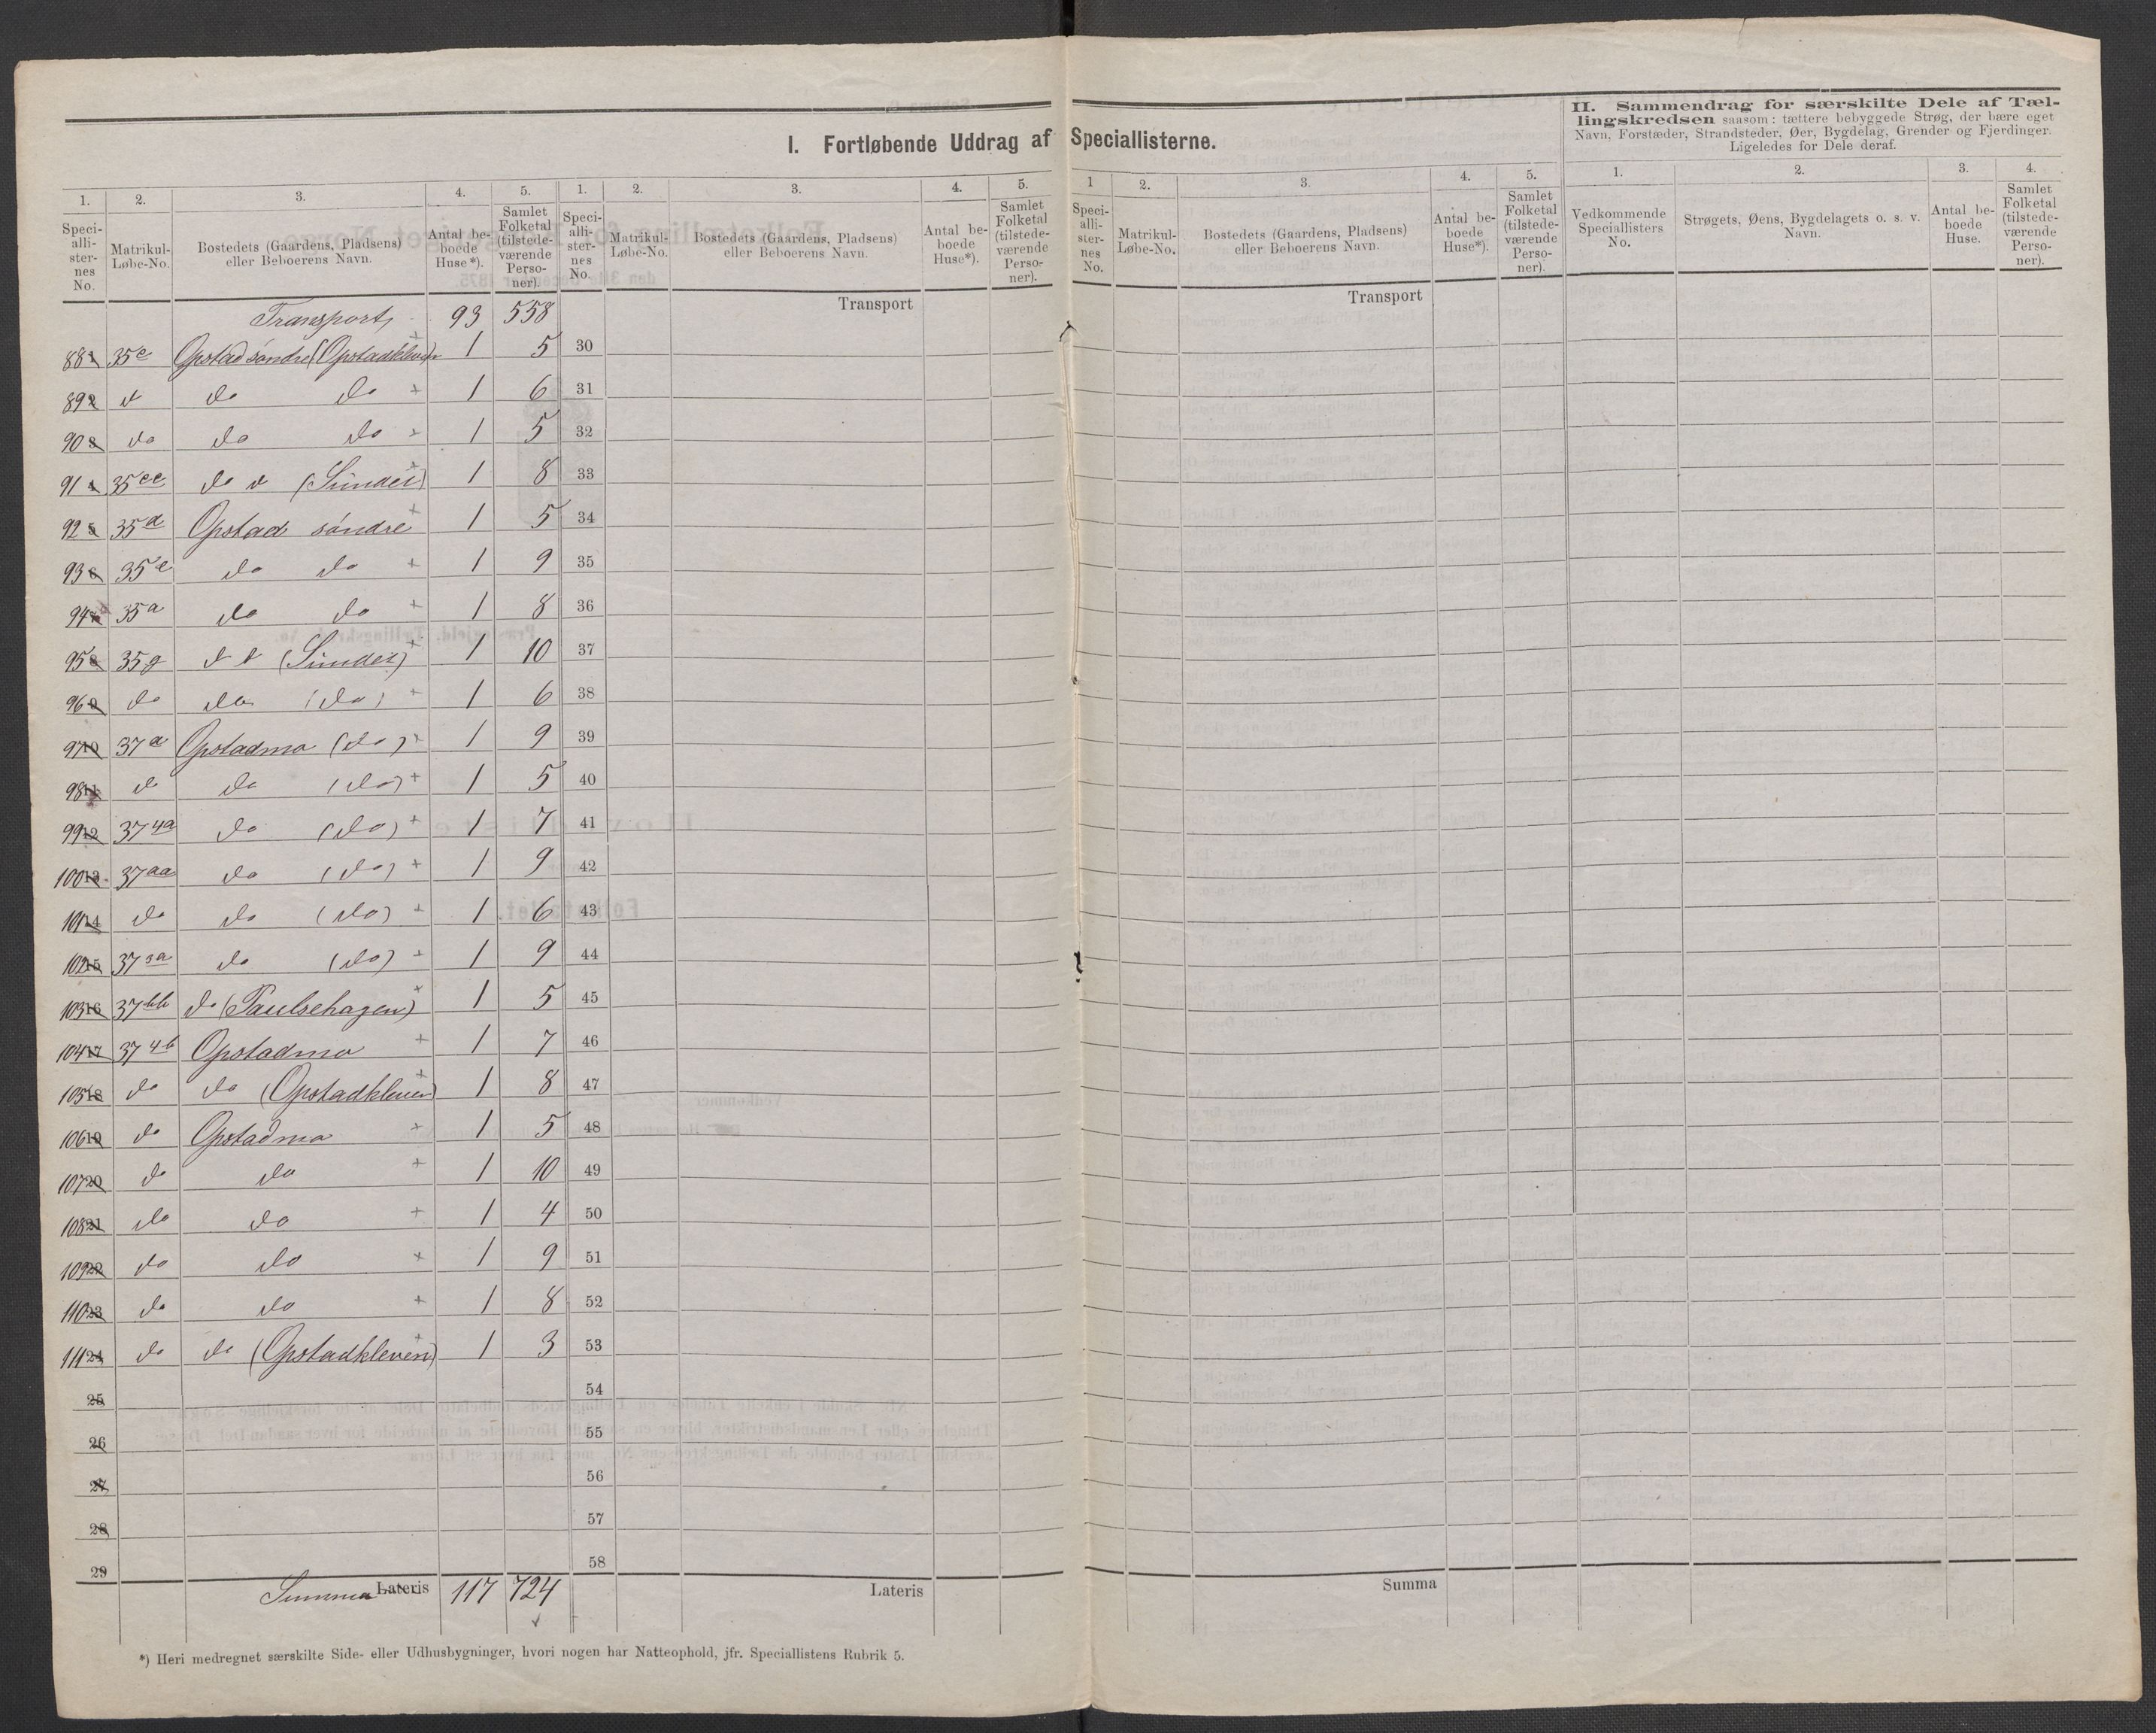 I. Fortløbende Uddrag af Speciallisterne.
II. Sammendrag for særskilte Dele af Tæl-
lingskredsen saasom: tættere bebyggede Strøg, der bære eget
Navn, Forstæder, Strandsteder, Øer, Bygdelag, Grender og Fjerdinger.
Ligeledes for Dele deraf.
1. 2. 3. 4. 5. 1. 2. 3. 4. 5. 1 2. 3. 4. 5. 1. 2. 3. 4.
Speci-alli-ster-nes No. Matrikul-Løbe-No. Bostedets (Gaardens, Pladsens) eller Beboerens Navn. Antal be-boede Huse*). Samlet Folketal (tilstede-værende Perso-ner).
Speci-alli-ster-nes No. Matrikul-Løbe-No. Bostedets (Gaardens, Pladsens) eller Beboerens Navn. Antal be-boede Huse*). Samlet Folketal (tilstede-værende Perso-ner).
Speci-alli-ster-nes No. Matrikul-Løbe-No. Bostedets (Gaardens, Pladsens) eller Beboerens Navn. Antal be-boede Huse*). Samlet Folketal (tilstede-værende Perso-ner).
Vedkommende Speciallisters No. Strøgets, Øens, Bygdelagets o. s. v. Navn. Antal be-boede Huse. Samlet Folketal (tilstede-værende Perso-ner).
Transport 93 558 Transport Transport
88 35c Opstad søndre (Opstadkleven 1 5 30
89 d do do + 1 6 31
90 do do do + 1 5 32
91 35cc do d 1 8 33
92 35d Opstad søndre + 1 5 34
93 35e do do + 1 9 35
94 35a do do + 1 8 36
95 35g d d 1 10 37
96 do do (do) + 1 6 38
97 37a Opstadmo (do) + 1 9 39
98 do do (do) + 1 5 40
99 37 4a do (do) + 1 7 41
100 37aa do (do) + 1 9 42
101 do do (do) + 1 6 43
102 37 do (do) + 1 9 44
103 37bb do (Paulsehagen) + 1 5 45
104 37 4b Opstadmo + 1 7 46
105 do do (Opstadkleven) + 1 8 47
106 do Opstadmo + 1 5 48
107 do do + 1 10 49
108 do do + 1 4 50
109 do do + 1 9 51
110 do do + 1 8 52
111 do do (Opstadkleven) + 1 3 53
25 54
26 55
27 56
28 57
29 58
Summa Lateris 117 724 Lateris Summa
*) Heri medregnet særskilte Side- eller Udhusbygninger, hvori nogen har Natteophold, jfr. Speciallistens Rubrik 5.